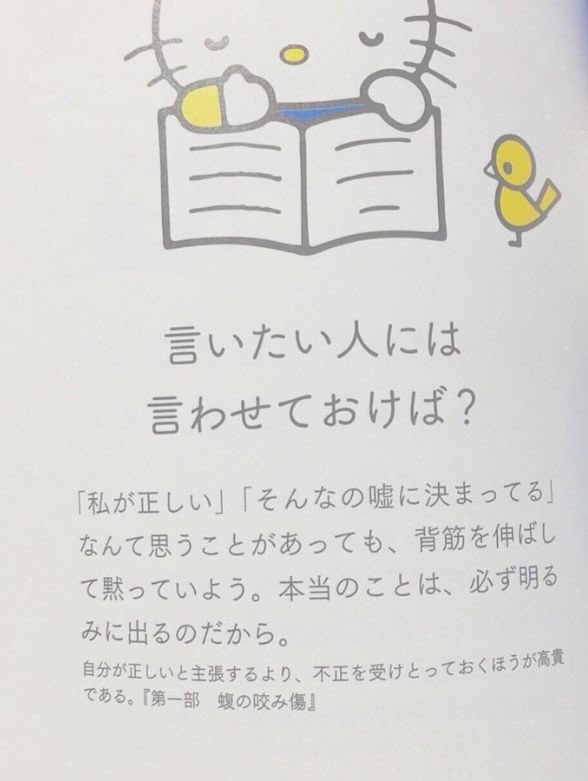 言いたい人には
言わせておけば？
「私が正しい」「そんなの嘘に決まってる」
なんて思うことがあっても、背筋を伸ばし
て黙っていよう。本当のことは、必ず明る
みに出るのだから。
自分が正しいと主張するより、不正を受けとっておくほうが高貴
である。『第一部　蝮の咬み傷』